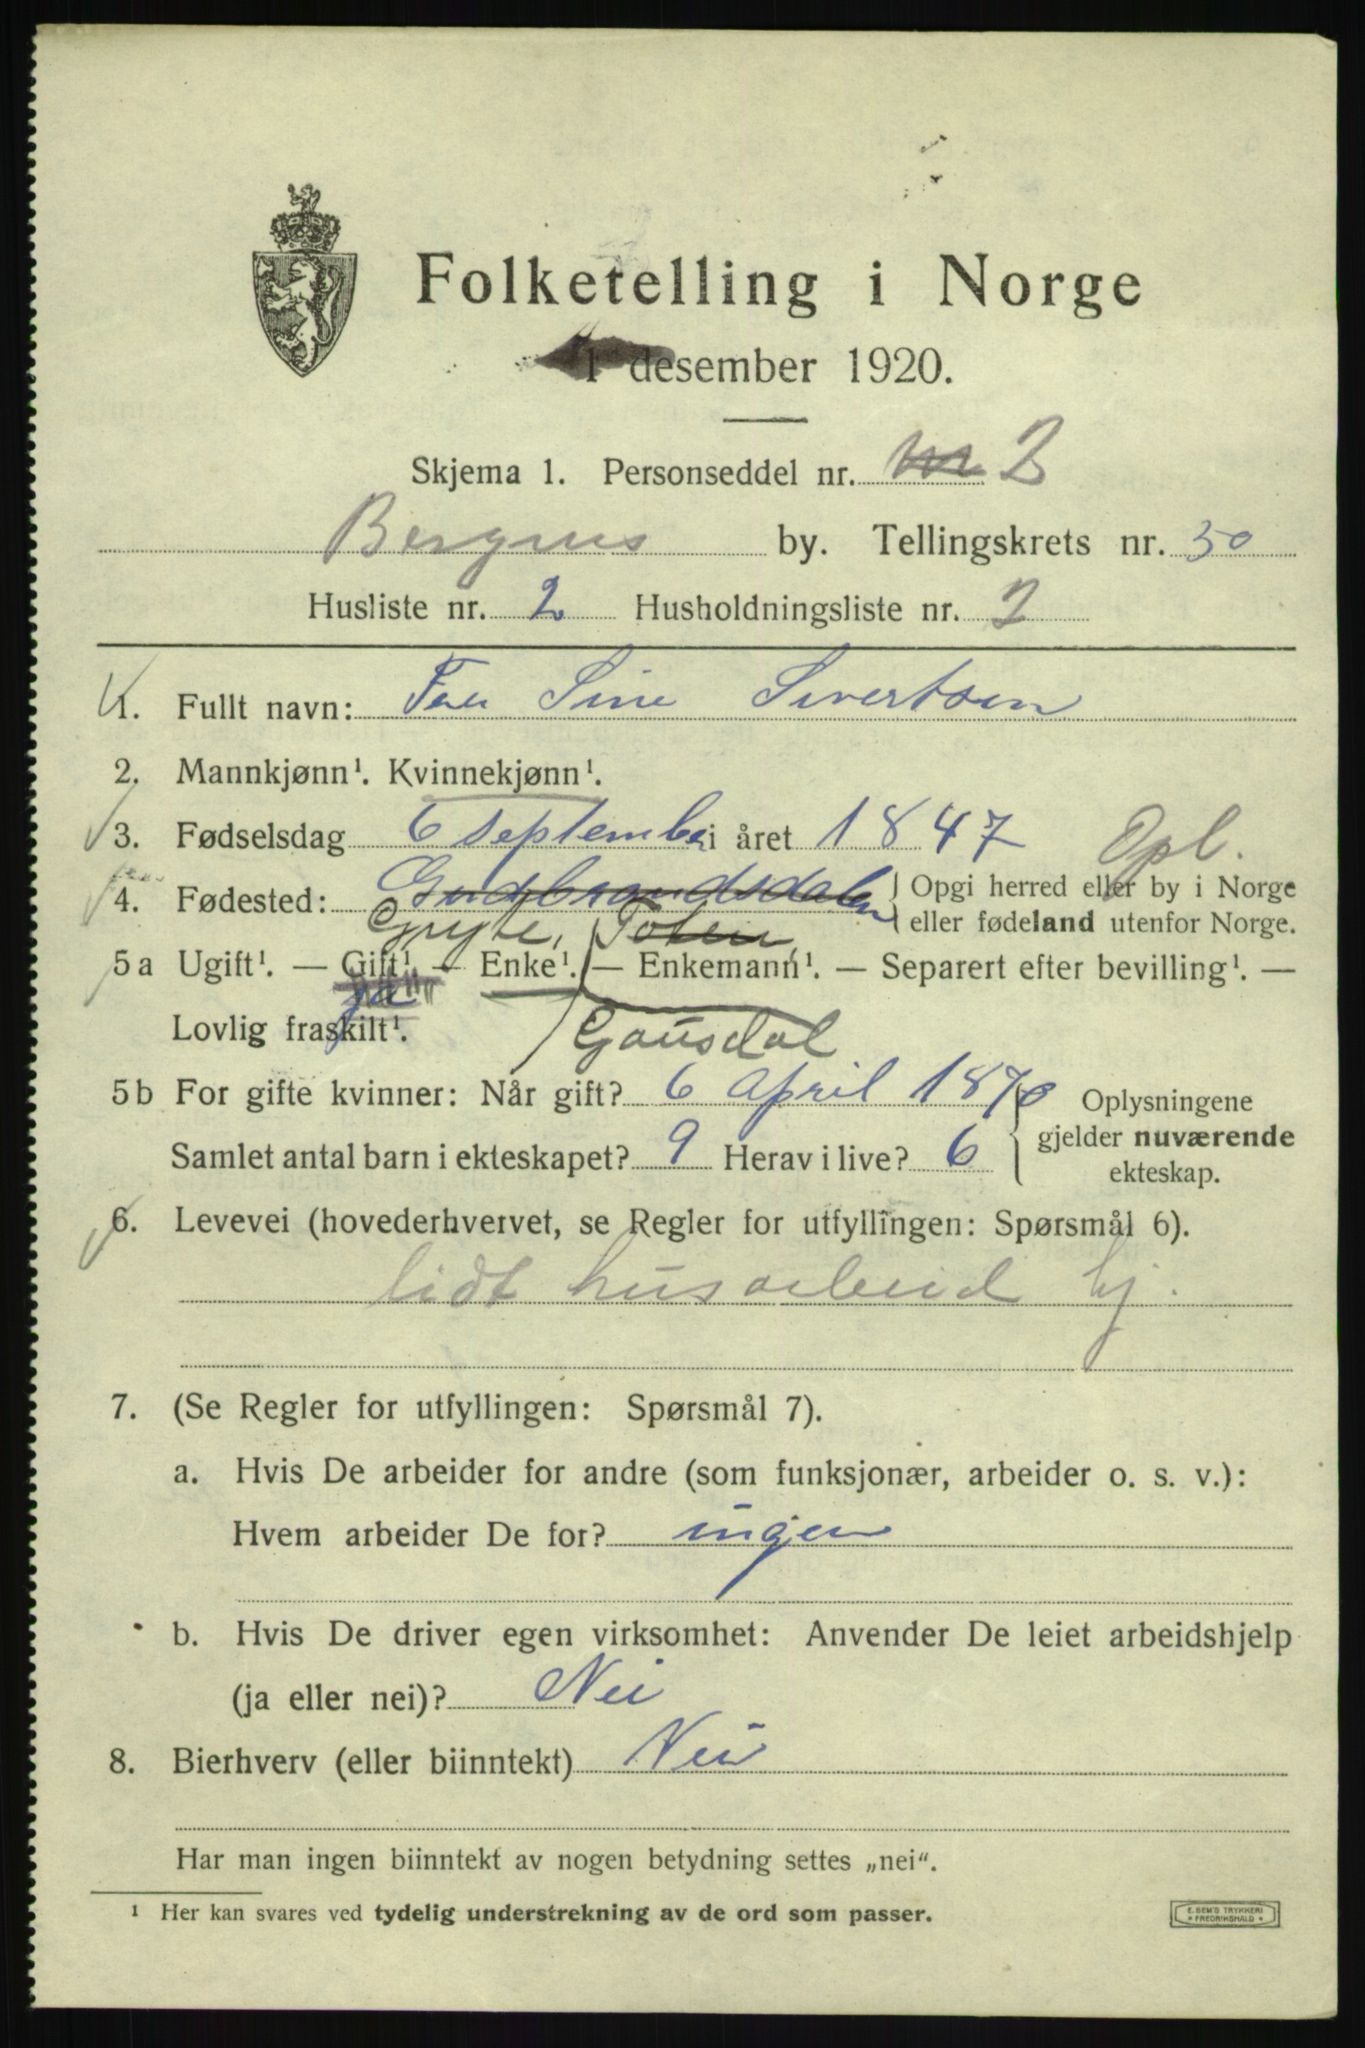 Folketelling i Norge
1 desember 1920.
Skjema 1. Personseddel nr. 2
Bergens by. Tellingskrets nr. 50
Husliste nr. 2 Husholdningsliste nr. 2
1. Fullt navn: Sine Sivertsen
2. Mannkjønn¹. Kvinnekjønn¹.
3. Fødselsdag 6 september i året 1847 Opl.
4. Fødested: Gudbrandsdalen Opgi herred eller by i Norge
eller fødeland utenfor Norge.
Toten,
5a Ugift¹. — Gift¹. — Enke¹. — Enkemann¹. — Separert efter bevilling¹. —
ja
Lovlig fraskilt¹. Gausdal
5b For gifte kvinner: Når gift? 6 april 1870 Oplysningene
gjelder nuværende
ekteskap.
Samlet antal barn i ekteskapet? 9 Herav i live? 6
6. Levevei (hovederhvervet, se Regler for utfyllingen: Spørsmål 6).
lidt husarbeid hj.
7. (Se Regler for utfyllingen: Spørsmål 7).
a. Hvis De arbeider for andre (som funksjonær, arbeider o. s. v.):
Hvem arbeider De for? ingen
b. Hvis De driver egen virksomhet: Anvender De leiet arbeidshjelp
(ja eller nei)? Nei
8. Bierhverv (eller biinntekt) Nei
Har man ingen biinntekt av nogen betydning settes „nei“.
¹ Her kan svares ved tydelig understrekning av de ord som passer.
E. SEM'S TRYKKERI
* FREDRIKSHALD *